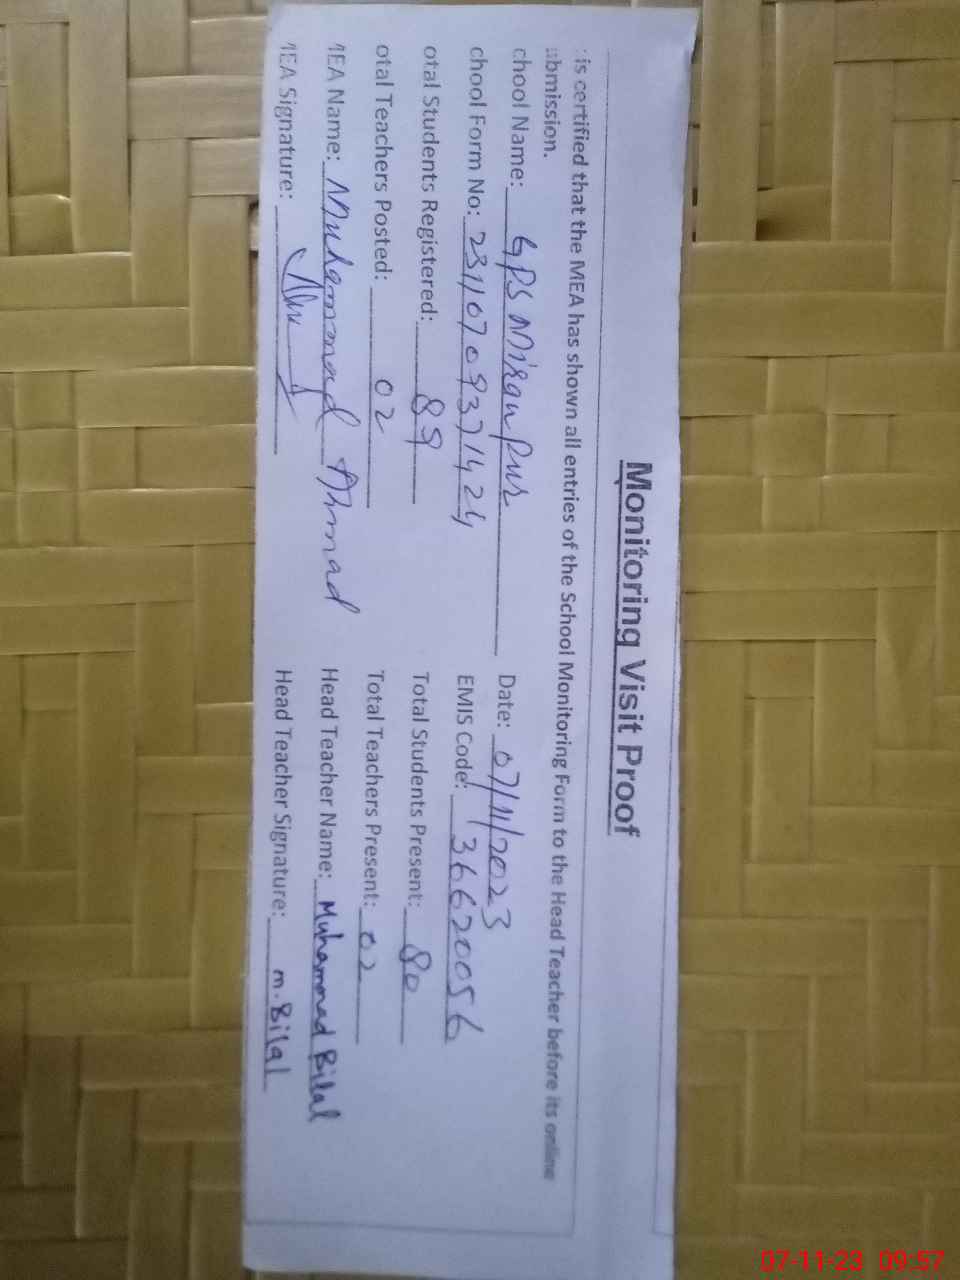 Monitoring Visit Proof
is certified that the MEA has shown all entries of the School Monitoring Form to the Head Teacher before its online
ubmission.
chool Name: GPS Miran Pur Date: 07/11/2023
chool Form No: EMIS Code: 36620056
otal Students Registered: 89 Total Students Present: 80
otal Teachers Posted: 02 Total Teachers Present: 02
MEA Name: Muhammad Ahmad Head Teacher Name: Muhammad Bilal
MEA Signature: Head Teacher Signature: M.Bilal
07-11-23 09:57